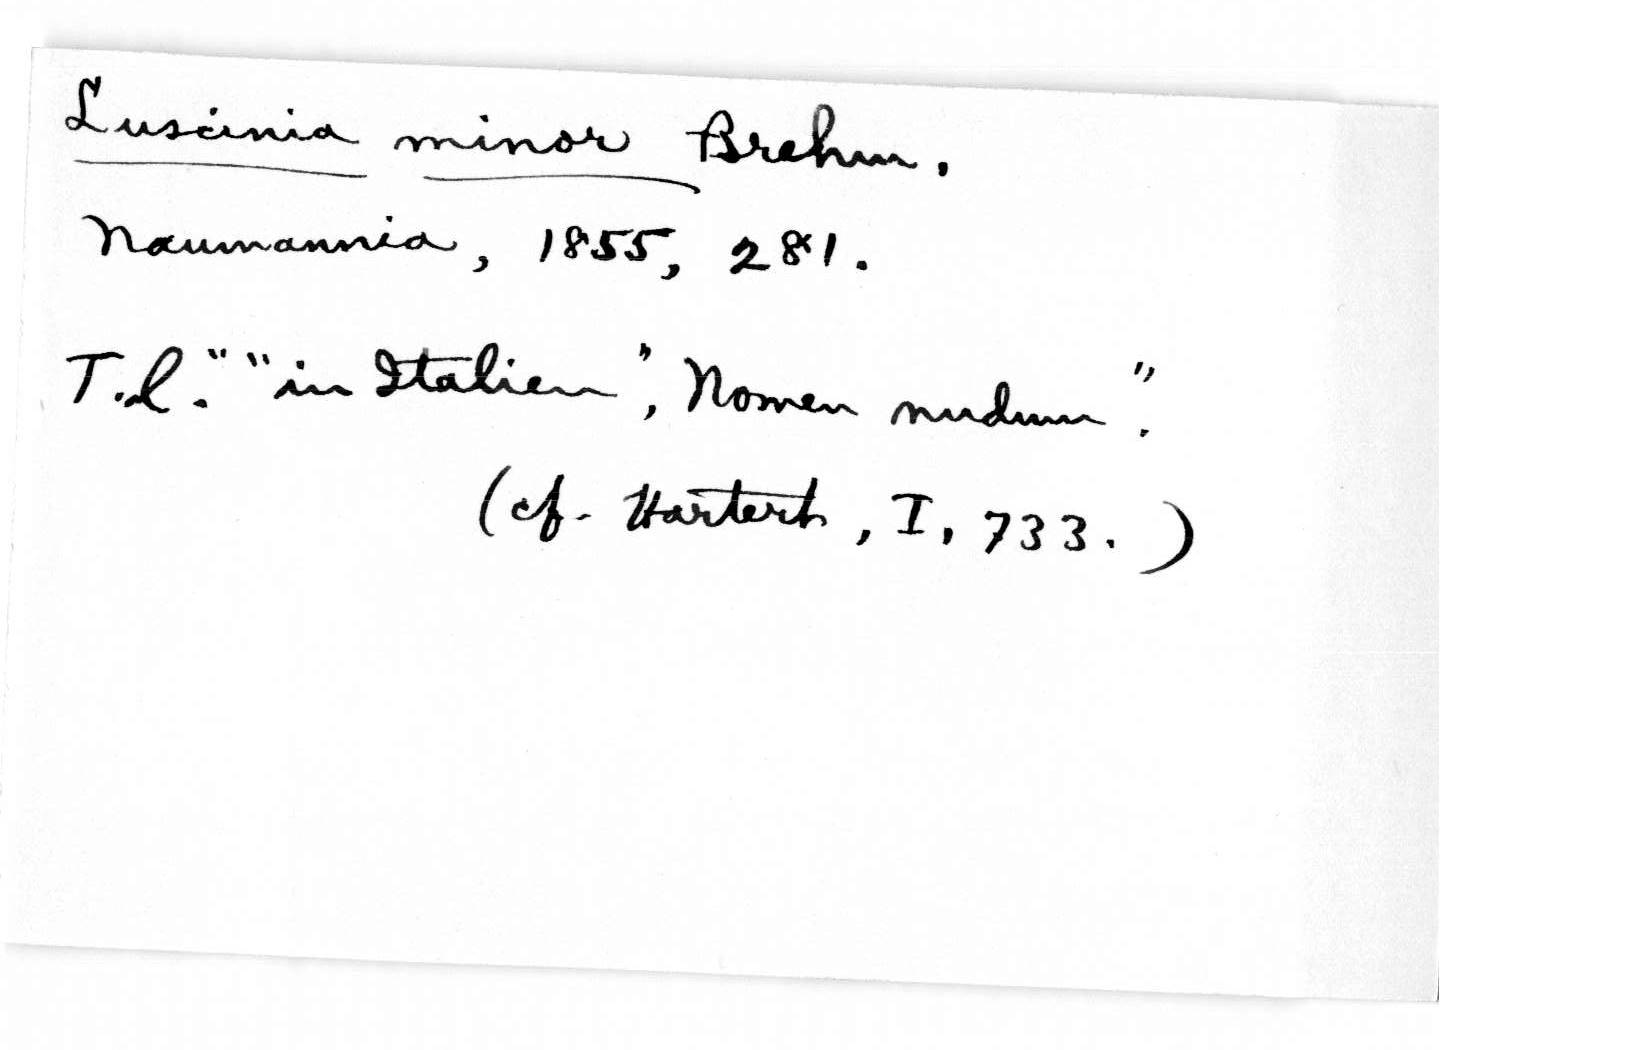 Luscinia minor Brehm.
Naumannia, 1855, 281.
T.l. " "in Italien", Nomen nudum".
(cf. Hartert, I, 733.)